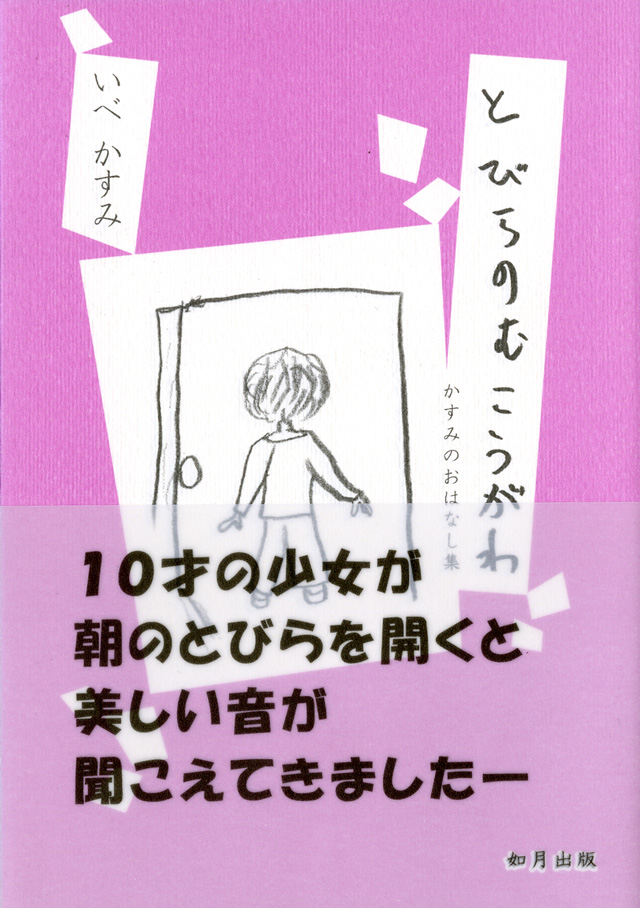 とびらのむこうがわ
かすみのおはなし集
いべ かすみ
10才の少女が
朝のとびらを開くと
美しい音が
聞こえてきましたー
如月出版